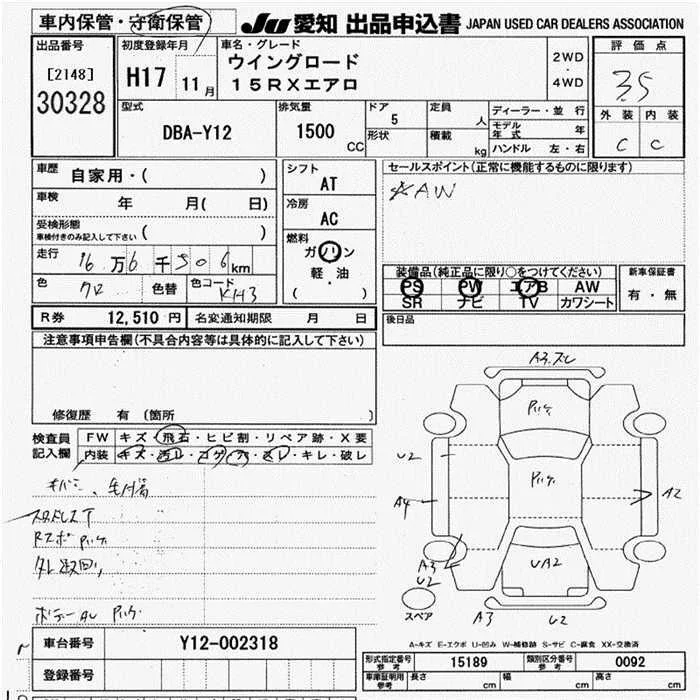 車内保管・守衛保管 JU 愛知 出品申込書 JAPAN USED CAR DEALERS ASSOCIATION
出品番号
[2148]
30328
初度登録年月
H17 11月
車名・グレード
ウイングロード
15RXエアロ
2WD
・
4WD
評価点
3.5
外装 内装
C C
型式
DBA-Y12
排気量
1500 CC
ドア
5
形状
定員
人
積載
kg
ディーラー・並行
モデル年式 年
ハンドル 左・右
車歴
自家用・( )
車検
年 月( 日)
受検形態
車検付きのみ記入して下さい ( )
走行
16万6千506km
色 クロ 色替 色コード KH3
シフト
AT
冷房
AC
燃料
ガソリン
軽・油
( )
セールスポイント(正常に機能するものに限ります)
AW
装備品(純品に限り○をつけてください)
PS PW エアB AW
SR ナビ TV カワシート
新車保証書
有・無
後日品
R券 12,510円 名変通知期限 月 日
注意事項申告欄(不具合内容等は具体的に記入して下さい)
修復歴 有(箇所 )
検査員記入欄
FW キズ・飛石・ヒビ割・リペア跡・X要
内装 キズ・汚レ・コゲ・穴・スレ・キレ・破レ
A3
U2
A4
A2
A3
U2
UA2
A3
U2
スペア
A-キズ E-エクボ U-凹み W-補修跡 S-サビ C-腐食 XX-交換済
車台番号 Y12-002318
登録番号
形式指定番号 参考 15189 類別区分番号 参考 0092
車庫証明用 参考 長さ cm 幅 cm 高さ cm